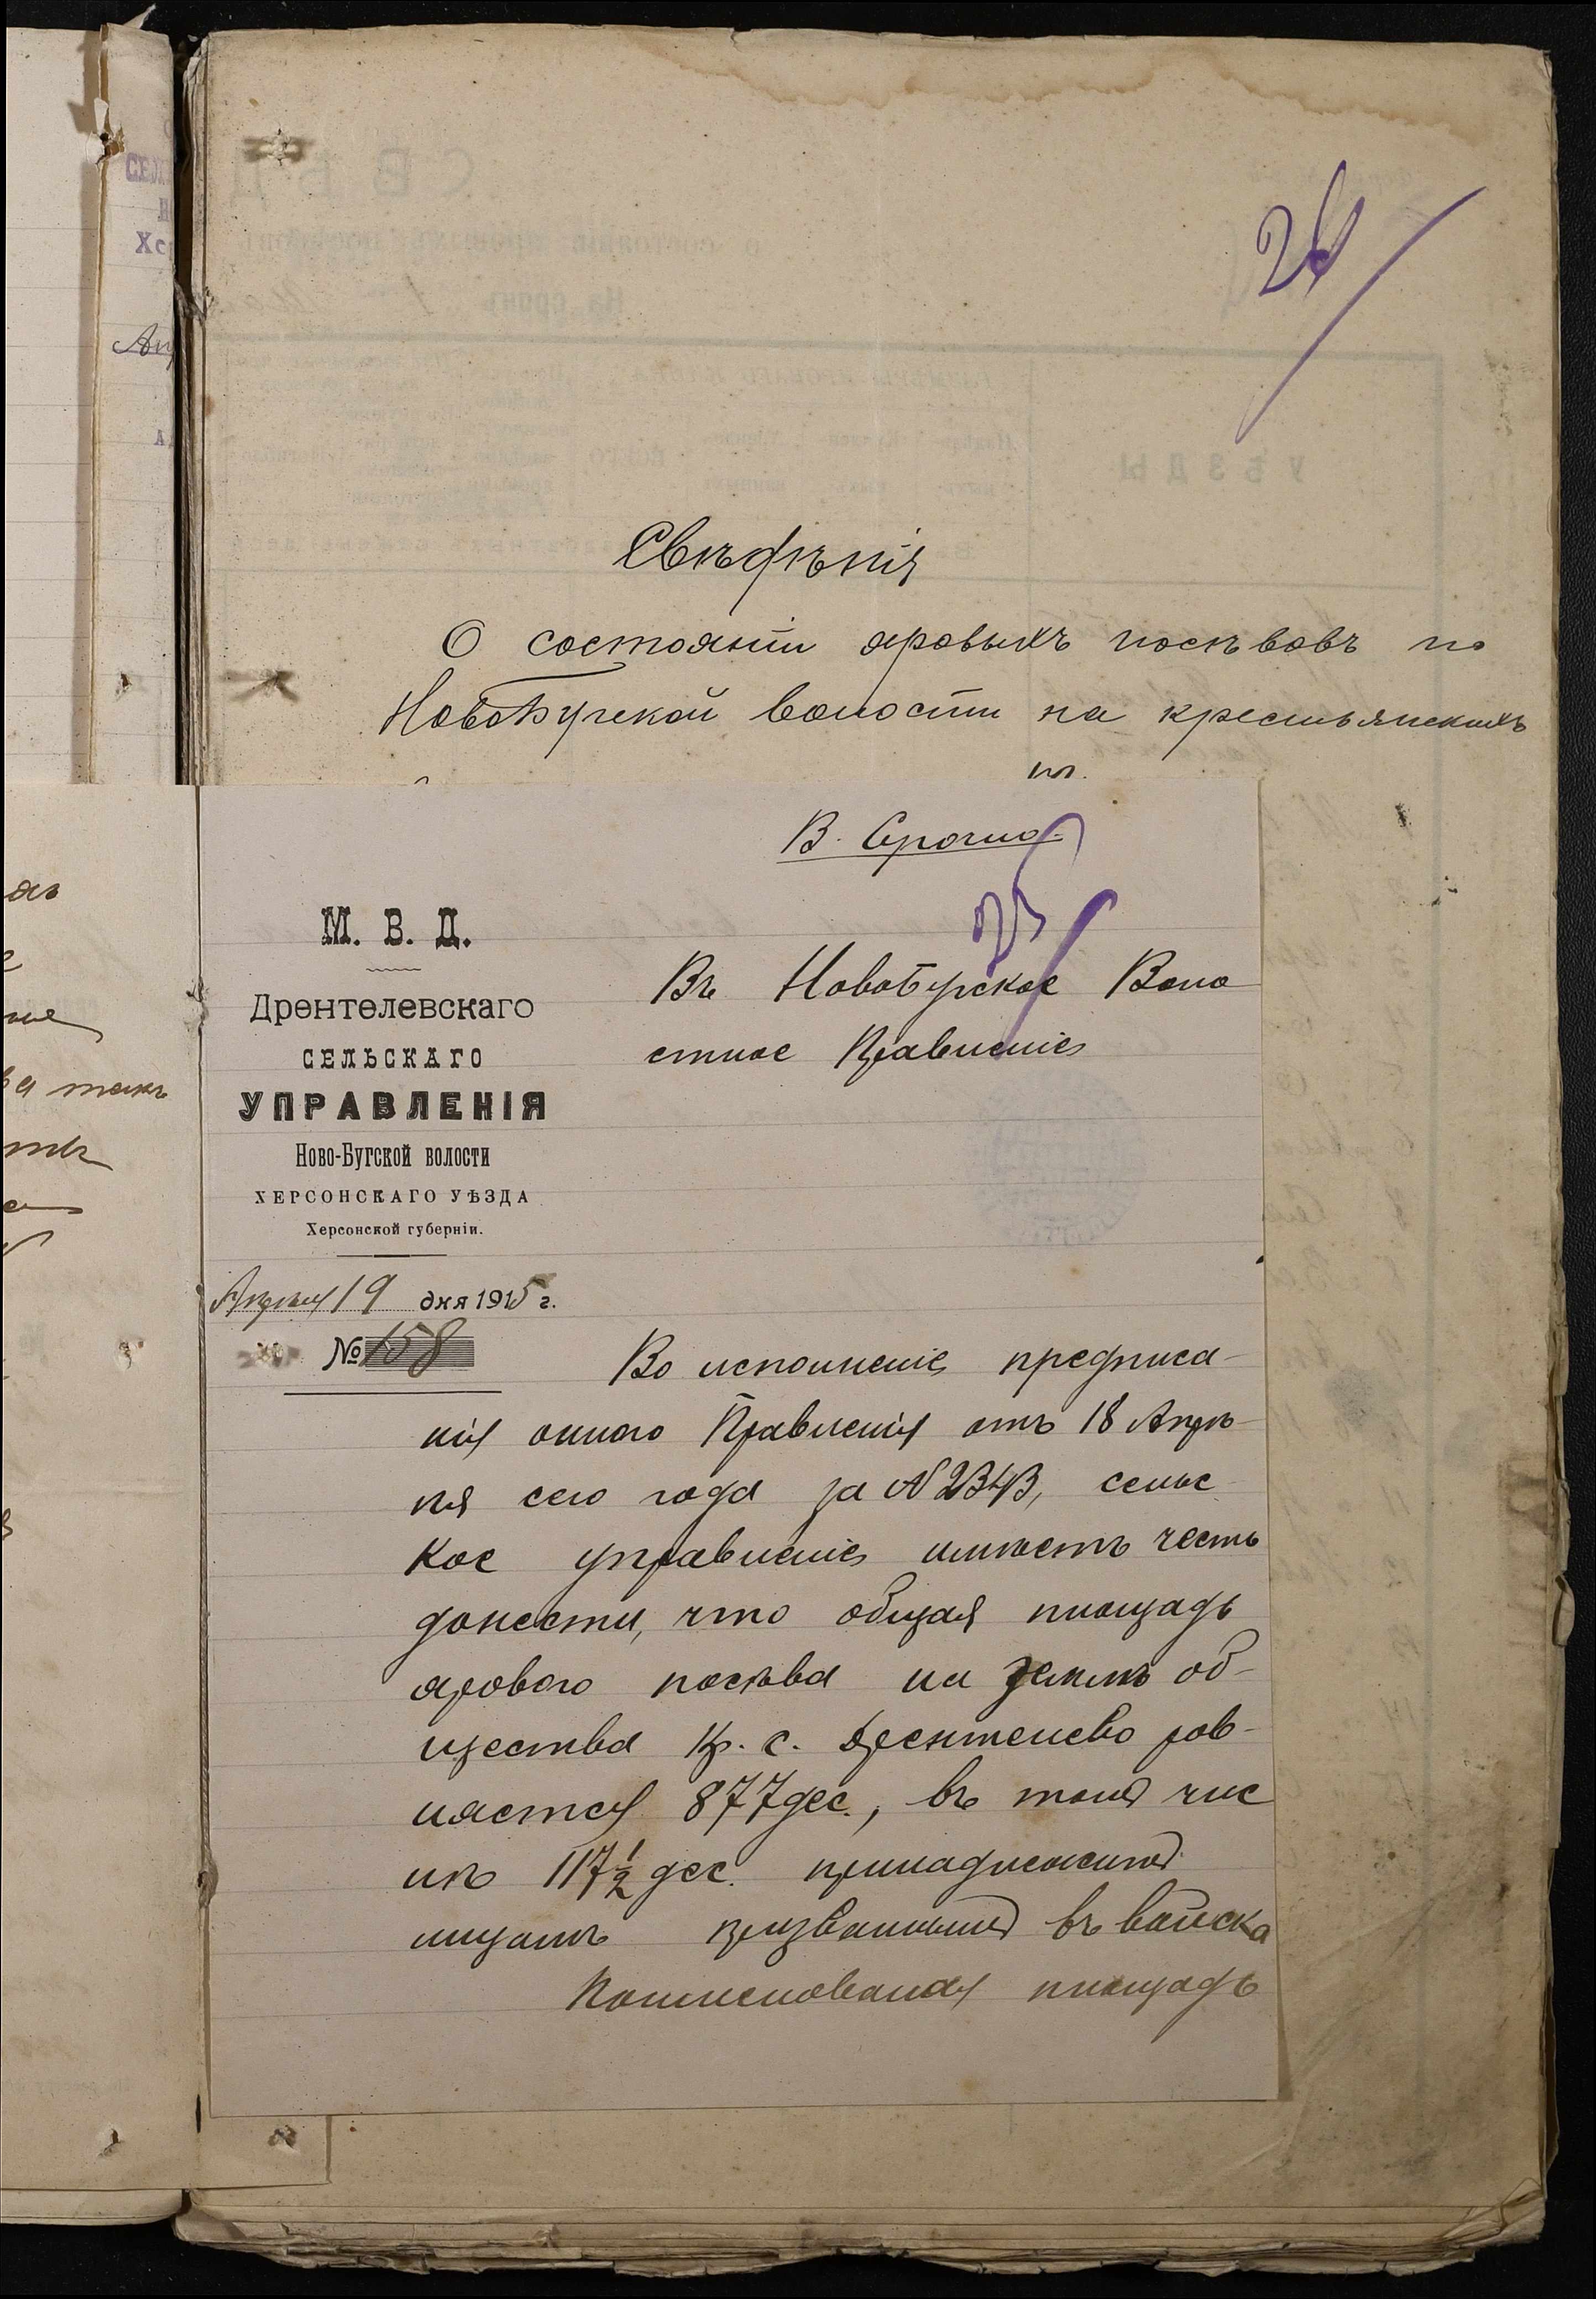 26
Свѣдѣнія
О состояніи яровыхъ посѣвовъ по
НовоБугской волости на крестьянскихъ
В. Срочно.
25
М. В. Д.
Дрентелевскаго
СЕЛЬСКАГО
УПРАВЛЕНІЯ
Ново-Бугской волости
ХЕРСОНСКАГО УѢЗДА
Херсонской губерніи.
Апрѣля 19 дня 1915 г.
№ 158
Въ Новобугское Воло
стное Правленіе
Во исполненіе предписа-
нія оннаго Правленія отъ 18 Апрѣ-
ля сего года за №2343, сельс
кое управленіе имѣетъ честь
донести, что общая площадь
ярового посѣва на землѣ об-
щества кр. с. Дрентелево рав-
няется 877 дес., въ томъ чис
лѣ 117½ дес. принадлежитъ
лицамъ призваннымъ въ войска
Поименованая площадь